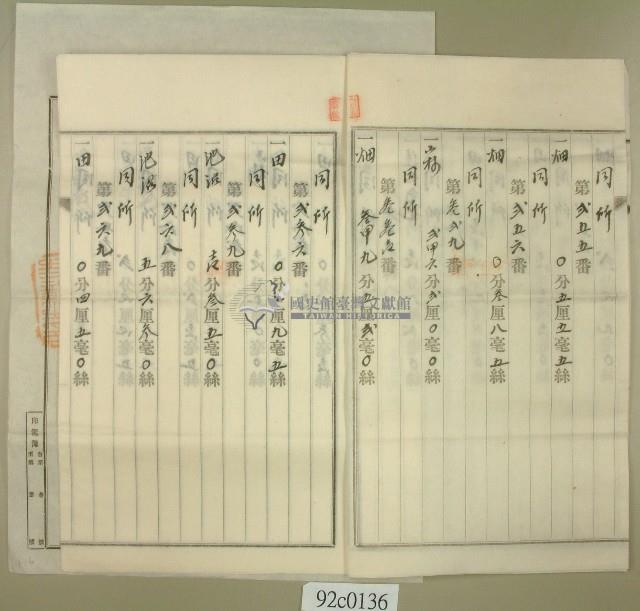 同所
第弐五五番
一畑 〇分五厘五毫五絲
同所
第弐五六番
一畑 〇分叁厘八毫五絲
同所
一山林 弐甲六分弐厘〇毫〇絲
同所
一畑 叁甲九分五厘弐毫〇絲
同所
第弐叁六番
一田 厘九毫五絲
同所
第弐叁九番
一池沼 分叁厘五毫〇絲
同所
第弐六八番
一池沼 五分六厘叁毫〇絲
同所
第弐六九番
一田 〇分四厘五毫〇絲
國史館臺灣文獻館
TAIWAN HISTORICA
92c0136